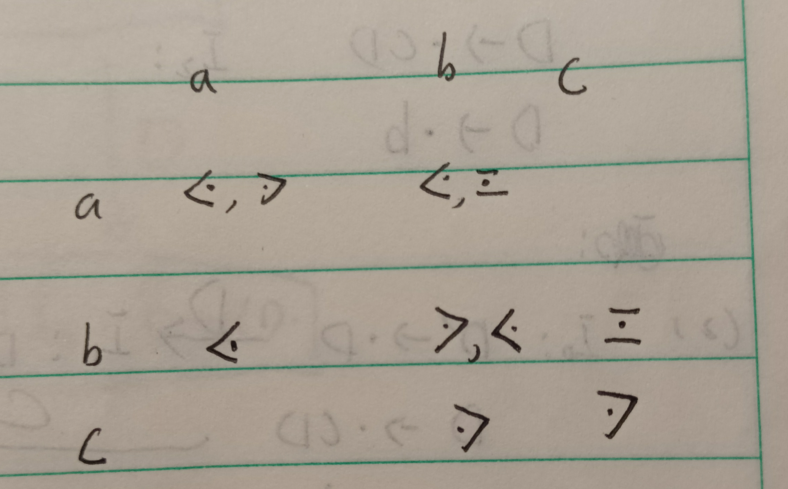 a b c
a ⋖, ⋗ ⋖, ≐
b ⋖ ⋗, ⋖ ≐
c ⋗ ⋗